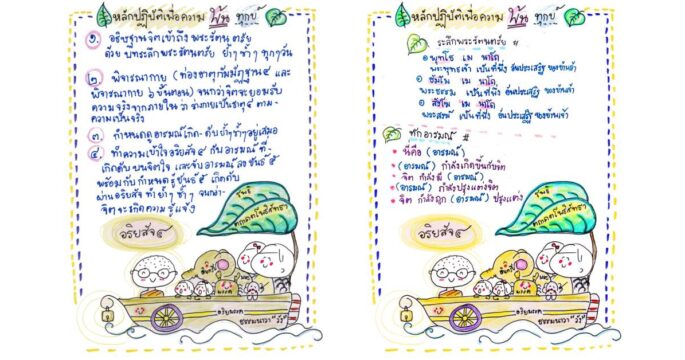 หลักปฏิบัติเพื่อความ พ้น ทุกข์
๑. อธิษฐานจิตเข้าถึง พระรัตนตรัย
ด้วย บทระลึกพระรัตนตรัย ย้ำๆ ซ้ำๆ ทุกๆวัน
๒. พิจารณากาย (ท่องธาตุกัมมัฏฐาน ๔ และ
พิจารณากาย ๖ ขั้นตอน) จนกว่าจิตจะยอมรับ
ความจริงจากภายใน ว่า ร่างกายเป็นธาตุ ๔ ตาม
ความเป็นจริง
๓. กำหนดดู อารมณ์เกิด-ดับ ย้ำๆ ซ้ำๆ อยู่เสมอ
๔. ทำความเข้าใจ อริยสัจ ๔ กับ อารมณ์ ที่
เกิดดับ บนจิตใจ และจับ อารมณ์ลงขันธ์ ๕
พร้อมกับ กำหนดรู้ ขันธ์ ๕ เกิดดับ
ผ่านอริยสัจ ทำ ย้ำๆ ซ้ำๆ จนกว่า
จิตจะเกิดความ รู้แจ้ง
อริยสัจ ๔
อริยมรรค
ธรรมนาวา "วัง"
หลักปฏิบัติเพื่อความ พ้น ทุกข์
ระลึกพระรัตนตรัย
พุทโธ เม นาโถ
พระพุทธเจ้า เป็นที่พึ่ง อันประเสริฐ ของข้าพเจ้า
ธัมโม เม นาโถ
พระธรรม เป็นที่พึ่ง อันประเสริฐ ของข้าพเจ้า
สังโฆ เม นาโถ
พระสงฆ์ เป็นที่พึ่ง อันประเสริฐ ของข้าพเจ้า
ทักอารมณ์
นี่คือ (อารมณ์)
(อารมณ์) กำลังเกิดขึ้นกับจิต
จิต กำลังมี (อารมณ์)
(อารมณ์) กำลังปรุงแต่งจิต
จิต กำลังถูก (อารมณ์) ปรุงแต่ง
อริยสัจ ๔
อริยมรรค
ธรรมนาวา "วัง"